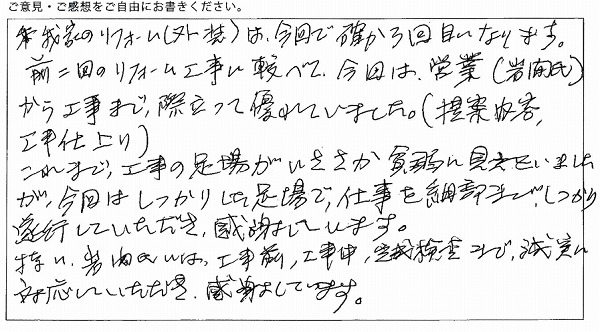 ご意見・ご感想をご自由にお書きください。
我家のリフォーム(外装)は、今回で確か3回目になります。
前二回のリフォーム工事に較べて、今回は、営業(岩間氏)
から工事まで、際立って優れていました。(提案内容、
工事仕上り)
これまで、工事の足場がいささか貧弱に見えていました
が、今回はしっかりした足場で、仕事を細部まで、しっかり
遂行していただき、感謝しています。
特に、岩間氏には、工事前、工事中、完成検査まで、誠実に
対応していただき、感謝しています。